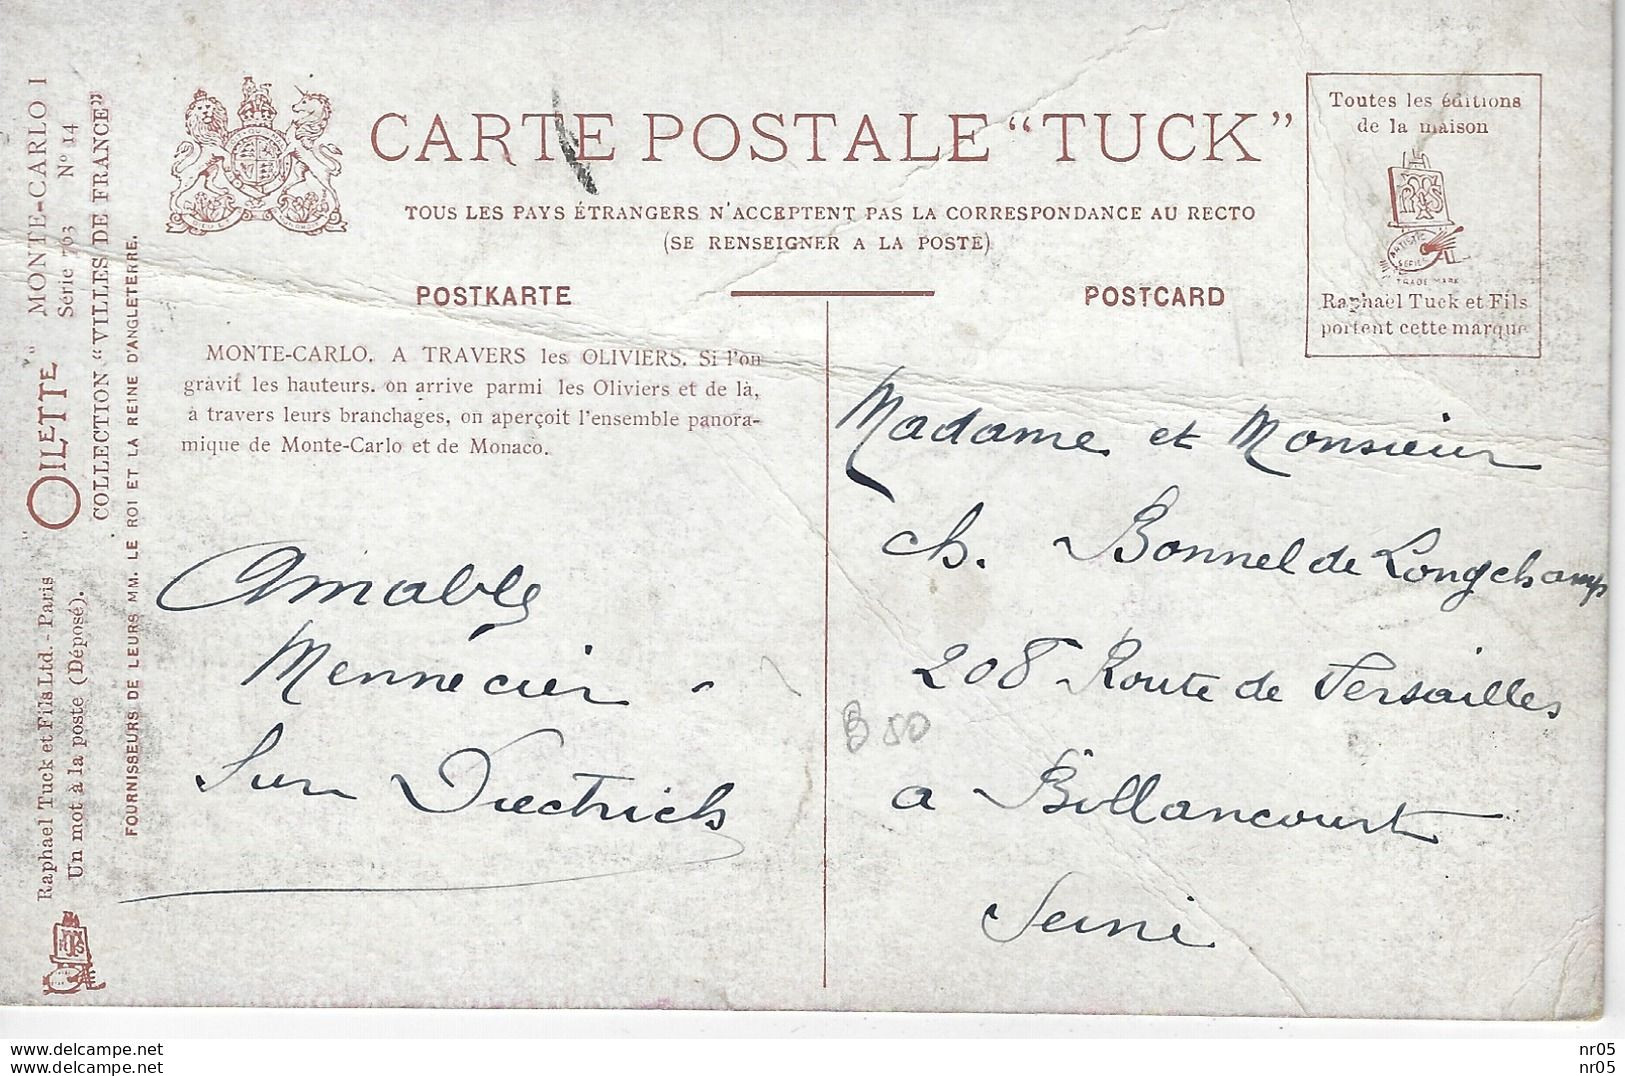 CARTE POSTALE “TUCK”
TOUS LES PAYS ÉTRANGERS N'ACCEPTENT PAS LA CORRESPONDANCE AU RECTO
(SE RENSEIGNER A LA POSTE)
POSTKARTE
POSTCARD
Toutes les éditions
de la maison
ARTISTIC
SERIES
TRADE MARK
Raphael Tuck et Fils
portent cette marque
"OILETTE" MONTE-CARLO I
Série 763 N° 14
COLLECTION “VILLES DE FRANCE”
FOURNISSEURS DE LEURS MM. LE ROI ET LA REINE D'ANGLETERRE.
Raphael Tuck et Fils Ltd. - Paris
Un mot à la poste (Déposé).
MONTE-CARLO. A TRAVERS les OLIVIERS. Si l'on
gravit les hauteurs. on arrive parmi les Oliviers et de là,
à travers leurs branchages, on aperçoit l'ensemble panora-
mique de Monte-Carlo et de Monaco.
Amable
Mennecier -
Sur Dietrich
Madame et Monsieur
Ch. Bonnel de Longchamp
208 Route de Versailles
a Billancourt
Seine
B 50
www.delcampe.net
www.delcampe.net
nr05
nr05